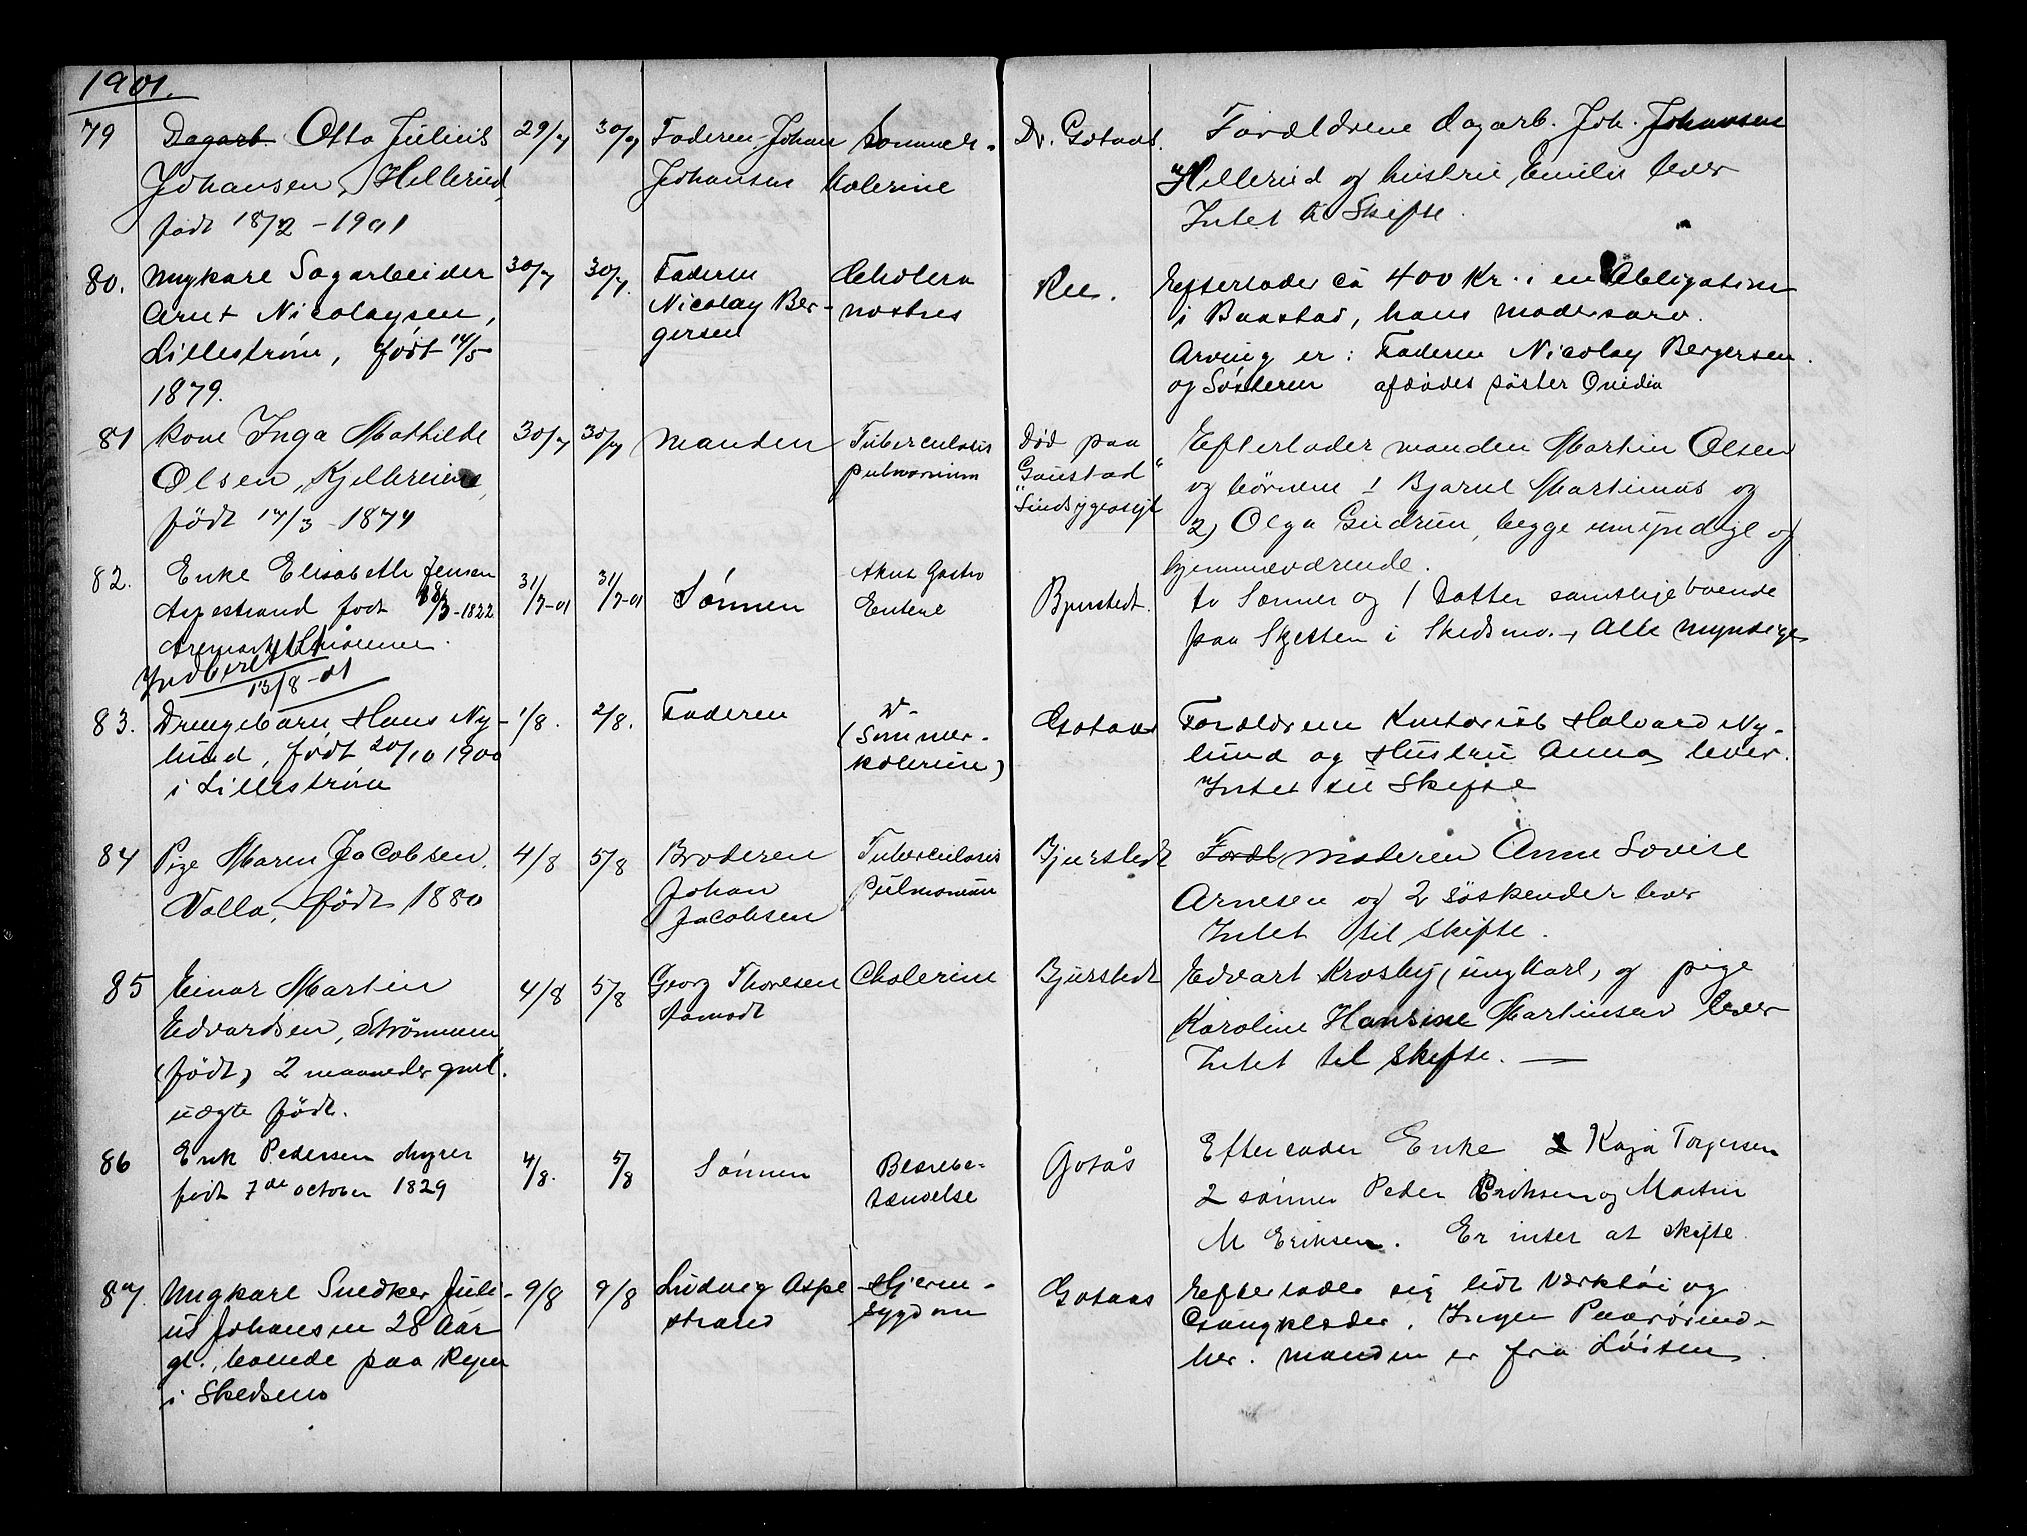 1901.
79 Dagarb. Otto Julius 29/7 30/7 Faderen Johan Sommer- Dr. Gotaas. Forældrene dagarb. Joh. Johansen
Johansen, Hillerud, Johansen kolerine Hillerud og hustru Emilie lever
født 18/2 - 1901 Intet til Skifte.
80. Ungkarl Sagarbeider 30/7 30/7. Faderen Cholera Ree. Efterlader ca 400 Kr. i en Obligation
Arnt Nicolaysen, Nicolay Ber- nostras i Baastad, hans modersarv.
Lillestrøm, født 14/5 gersen Arving er: Faderen Nicolay Bergersen.
1879. og Søsteren afdødes søster Ovidia
81 Kone Inga Mathilde 30/7 30/7 Manden Tuberculosis Død paa Efterlader manden Martin Olsen
Olsen, Kjellerenne, pulmonum Gaustad og børnene 1 Bjarne Martinus og
født 14/3 - 1874 Sindsygeasyl 2, Olga Gudrun, begge umyndige og
hjemmeværende.
82. Enke Elisabeth Jensen 31/7-01 31/7-01 Sønnen Akut Gastro Bjurstedt. to Sønner og 1 Datter samtlige boende
Aspestrand født 1822 Enterie paa Skjetten i Skedsmo. Alle Myndige
Aremark
Indberettet
13/8-01
83. Drengebarn Hans Ny- 1/8. 2/8. Faderen Gotaas Forældrene Kontorist Halvard Ny-
lund, født 20/10 1900 (Sommer- lund og Hustru Anna lever.
i Lillestrøm kolerine) Intet til Skifte
84 Pige Maren Jacobsen. 4/8 5/8 Broderen Tuberculosis Bjurstedt Foræl, moderen Anne Lovise
Volla, født 1880 Johan Pulmonum Arnesen og 2 søskender lever
Jacobsen Intet til skifte.
85 Einar Martin 4/8 5/8 Georg Thoresen Cholerine Bjurstedt Edvart Krosby, ungkarl, og pige
Edvardsen, Strømmen Aamodt Karoline Hansine Martinsen lever
(født) 2 maaneder gml. Intet til skifte. —
uægte født.
86 Erik Pedersen Myrer 4/8. 5/8 Sønnen Gotås Efterlader Enke Kaja Torgersen
født 7de october 1829 tændelse 2 sønner Peder Eriksen og Martin
M Eriksen. Er intet at skifte
87. Ungkarl Snedker Juli- 9/8 9/8 Ludvig Aspe Hjerne- Gotaas Efterlader sig lidt Værktøi og
us Johansen 28 Aar strand sygdom Gangklæder. Ingen Paarørend-
gl., boende paa Rejen her. Manden er fra Løiten.
i Skedsmo